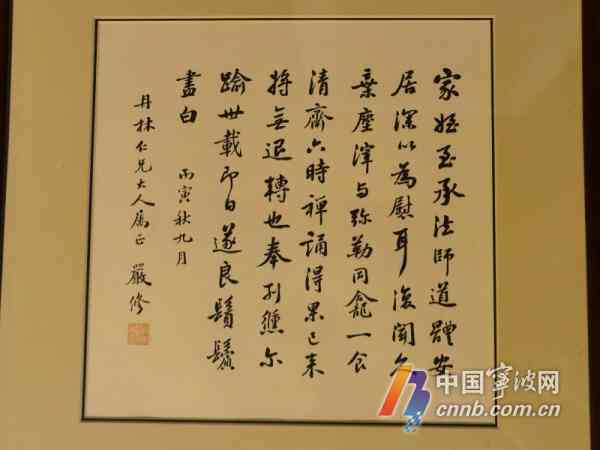 家姪至承法師道體安
居深以為慰耳復聞久
棄塵滓与弥勒同龕一食
清齋六時禪誦得果已来
将無退轉也奉別儵尔
踰卅載即日遂良鬚鬢
盡白 丙寅秋九月
丹林仁兄大人属正 嚴修
中国宁波网
cnnb.com.cn